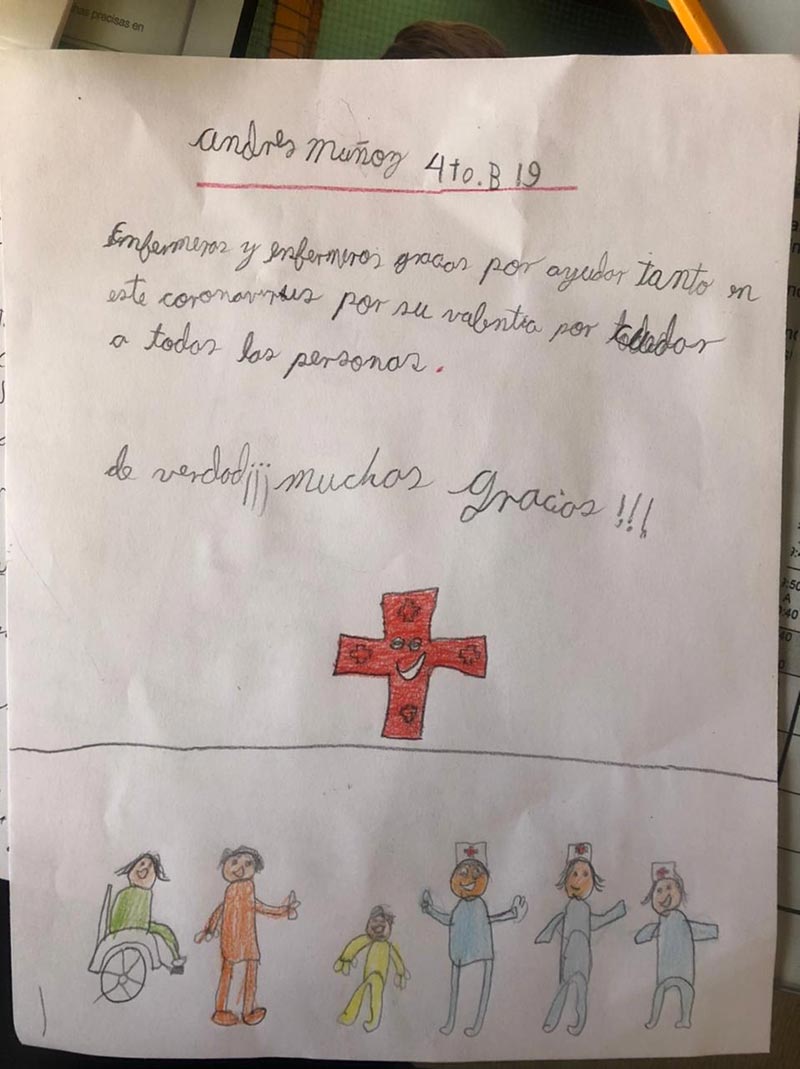 has precisas en
andres muñoz 4to.B 19
Enfermeras y enfermeros gracias por ayudar tanto en
este coronavirus por su valentia por
a todas las personas.
de verdad¡¡¡ muchas gracias!!!